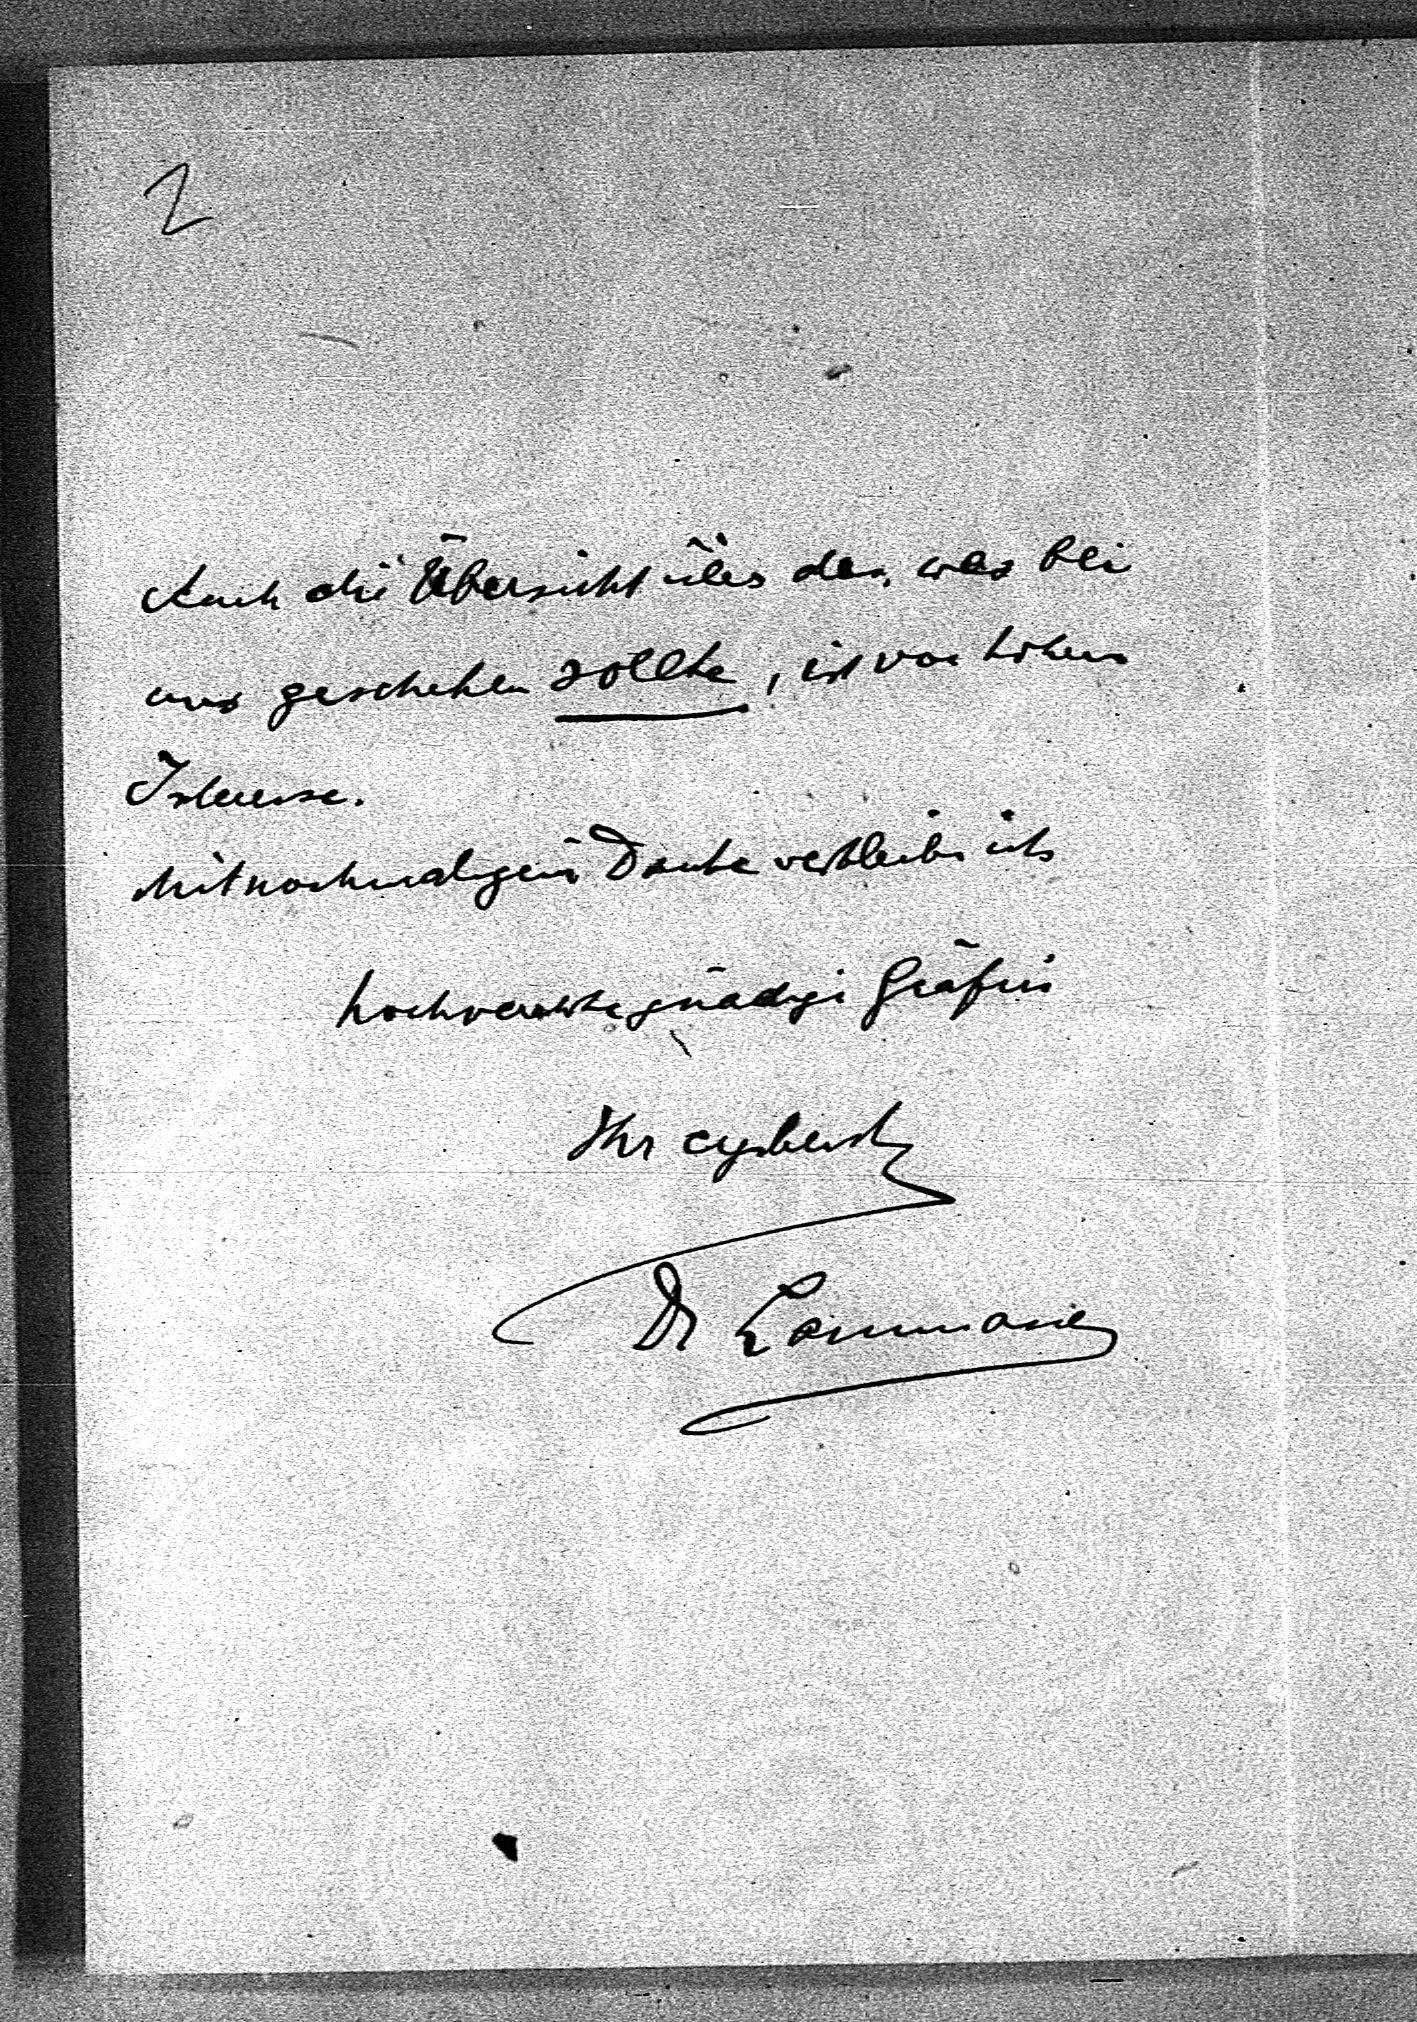 2
Auch die Übersicht über das, was bei
uns geschehen sollte, ist von hohem
Interesse.
Mit nochmaligem Danke verbleibe ich
hochverehrte gnädige Gräfin
Ihr ergebenst
Dr Lammasch